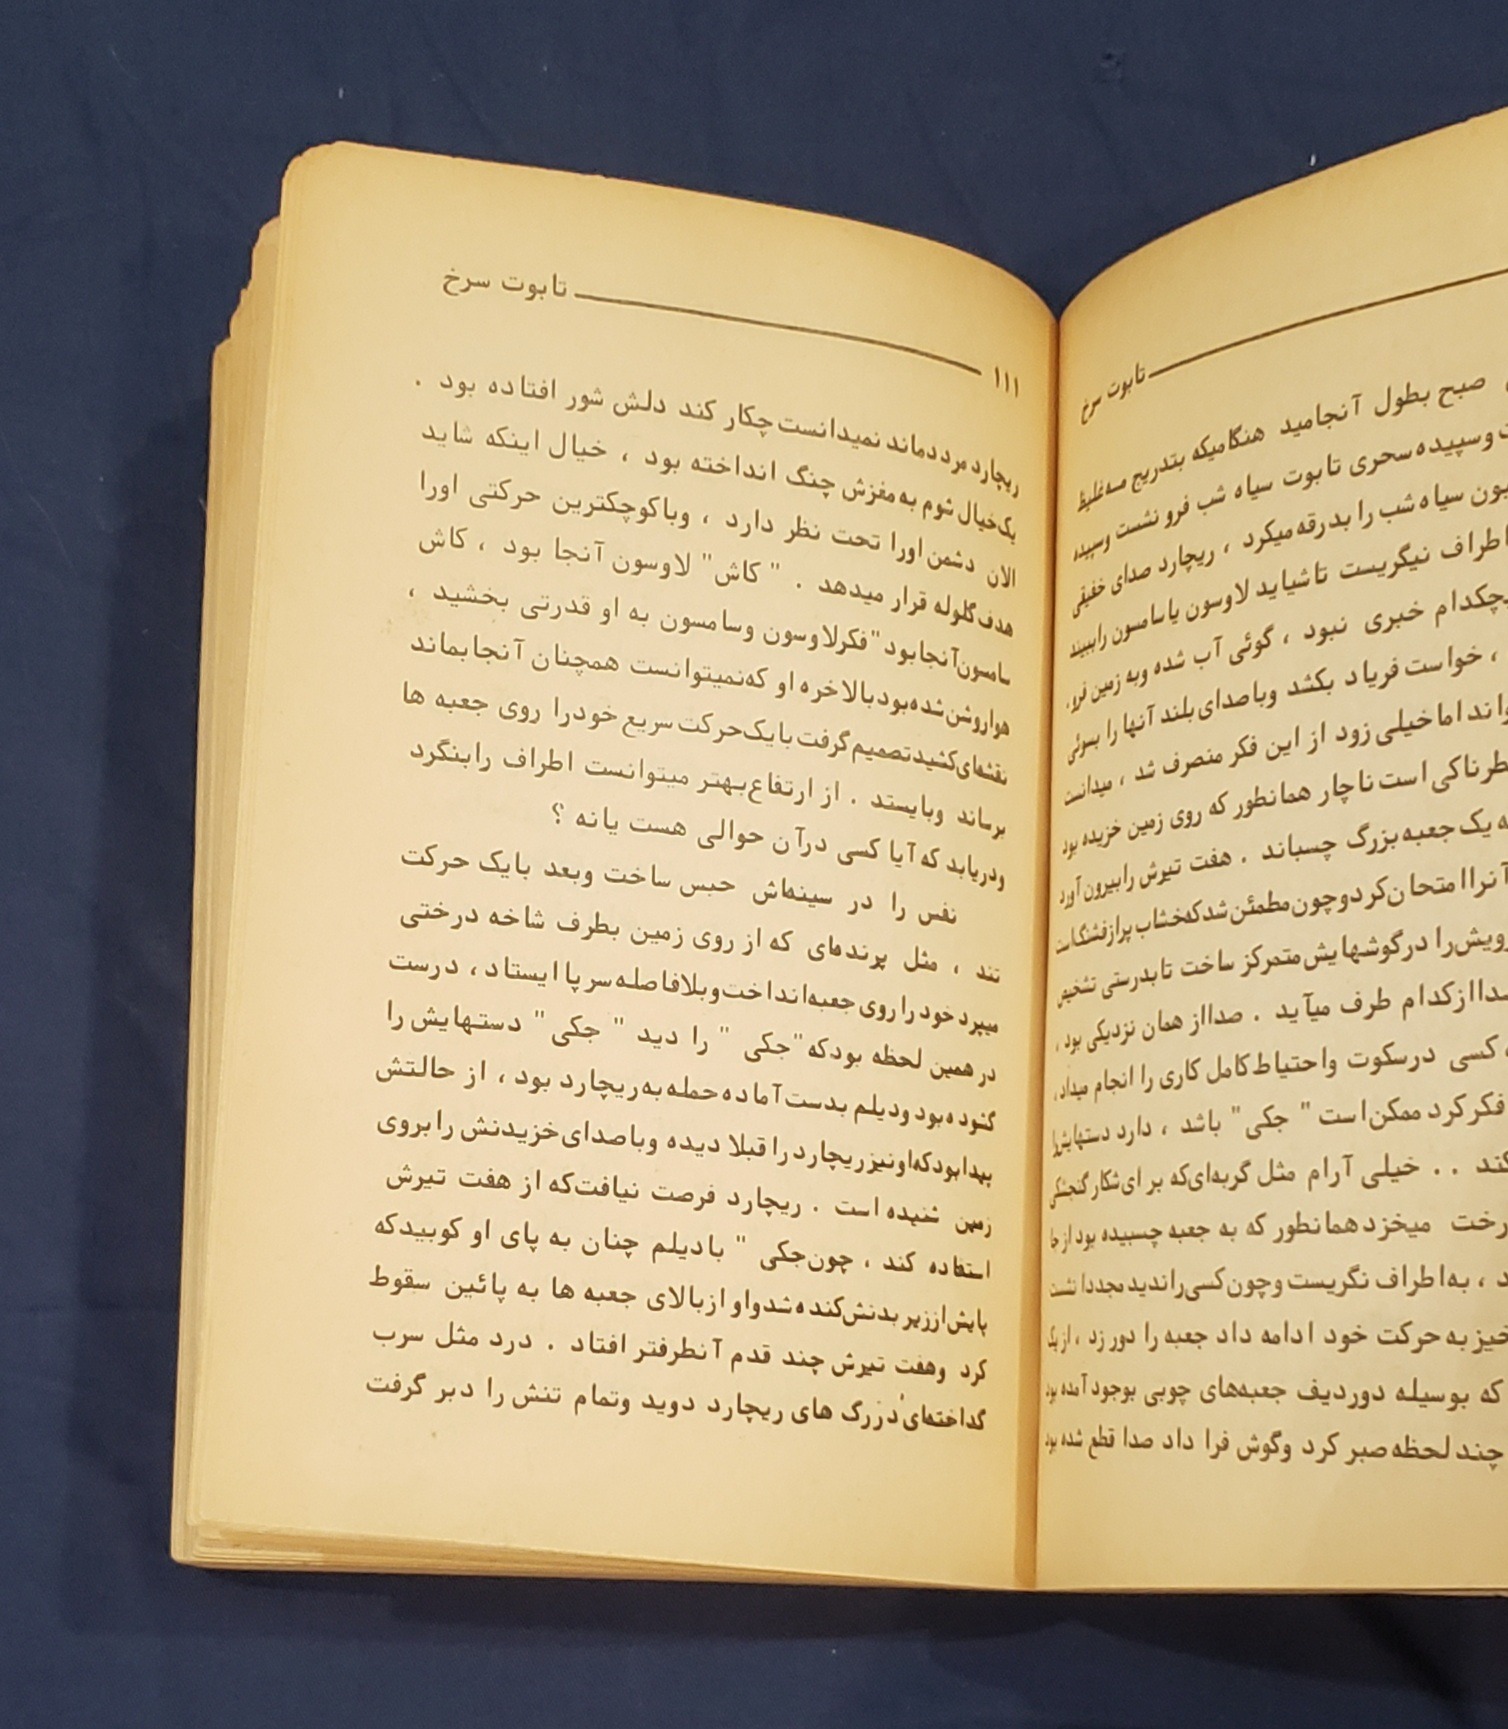 تابوت سرخ
صبح بطول آنجامید هنگامیکه بتدریج مه غلیظ
وسپیده سحری تابوت سیاه شب فرو نشست وسپیده
سیاه شب را بدرقه میکرد ، ریچارد صدای خفیفی
اطراف نیگریست تاشیاید لاوسون یاسامسون راببیند
خبری نبود ، گوئی آب شده وبه زمین فرو،
، خواست فریاد بکشد وباصدای بلند آنها را بسوئی
اما خیلی زود از این فکر منصرف شد ، میدانست
است ناچار همانطور که روی زمین خزیده بود
یک جعبه بزرگ چسباند . هفت تیرش رابیرون آورد
آنرا امتحان کرد وچون مطمئن شدکه خشاب پراز فشنگ است
را درگوشهایش متمرکز ساخت تابدرستی تشخیص
ازکدام طرف میآید . صدااز همان نزدیکی بود ،
کسی درسکوت واحتیاط کامل کاری را انجام میداد ،
فکر کرد ممکن است " جکی " باشد ، دارد دستهایش را
کند . . خیلی آرام مثل گربه‌ای‌که برای شکار گنجشکی
میخزد همانطور که به جعبه چسبیده بود از جا
، به اطراف نگریست وچون کسی راندید مجددا نشست
به حرکت خود ادامه داد جعبه را دور زد ، از یک
که بوسیله دوردیف جعبه‌های چوبی بوجود آمده بود
چند لحظه صبر کرد وگوش فرا داد صدا قطع شده بود
۱۱۱ تابوت سرخ
ریچارد مرددماند نمیدانست چکار کند دلش شور افتاده بود .
یک خیال شوم به مغزش چنگ انداخته بود ، خیال اینکه شاید
الان دشمن اورا تحت نظر دارد ، وباکوچکترین حرکتی اورا
هدف گلوله قرار میدهد . " کاش" لاوسون آنجا بود ، کاش
سامسون آنجابود "فکرلاوسون وسامسون به او قدرتی بخشید ،
هوا روشن شده بود بالاخره او که نمیتوانست همچنان آنجابماند
نقشه‌ای کشید تصمیم گرفت بایک حرکت سریع خودرا روی جعبه ها
برساند وبایستد . از ارتفاع بهتر میتوانست اطراف رابنگرد
ودریابد که آیا کسی درآن حوالی هست یانه ؟
نفس را در سینه‌اش حبس ساخت وبعد بایک حرکت
تند ، مثل پرنده‌ای که از روی زمین بطرف شاخه درختی
میپرد خود را روی جعبه‌انداخت وبلافاصله سرپا ایستاد ، درست
در همین لحظه بودکه "جکی " را دید " جکی " دستهایش را
گشوده بود ودیلم بدست آماده حمله به ریچارد بود ، از حالتش
پیدا بود که‌اونیز ریچارد را قبلا دیده وباصدای خزیدنش را بروی
زمین شنیده است . ریچارد فرصت نیافت که از هفت تیرش
استفاده کند ، چون جکی " بادیلم چنان به پای او کوبید که
پایش اززیر بدنش کنده شدواو ازبالای جعبه ها به پائین سقوط
کرد وهفت تیرش چند قدم آنطرفتر افتاد . درد مثل سرب
گداخته‌ای درزرگ های ریچارد دوید وتمام تنش را دبر گرفت